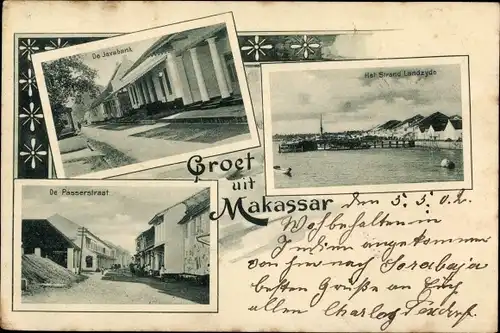 De Javabank
Het Strand Landzyde
Groet
uit
Makassar
De Passerstraat
den 5.5.02.
Wohbehalten in
angekommen
von hier nach Sorabaja
besten Grüße an Euch
allen Charles